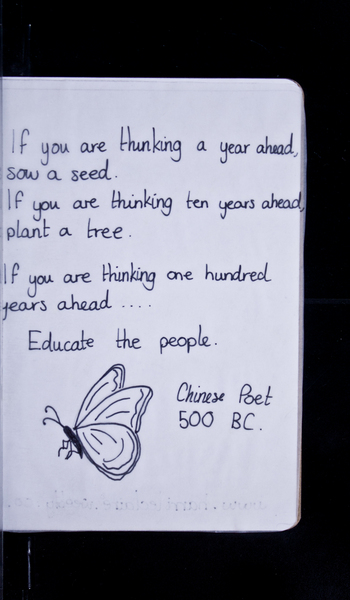 If you are thinking a year ahead,
sow a seed.
If you are thinking ten years ahead,
plant a tree.
If you are thinking one hundred
years ahead ....
Educate the people.
Chinese Poet
500 BC.